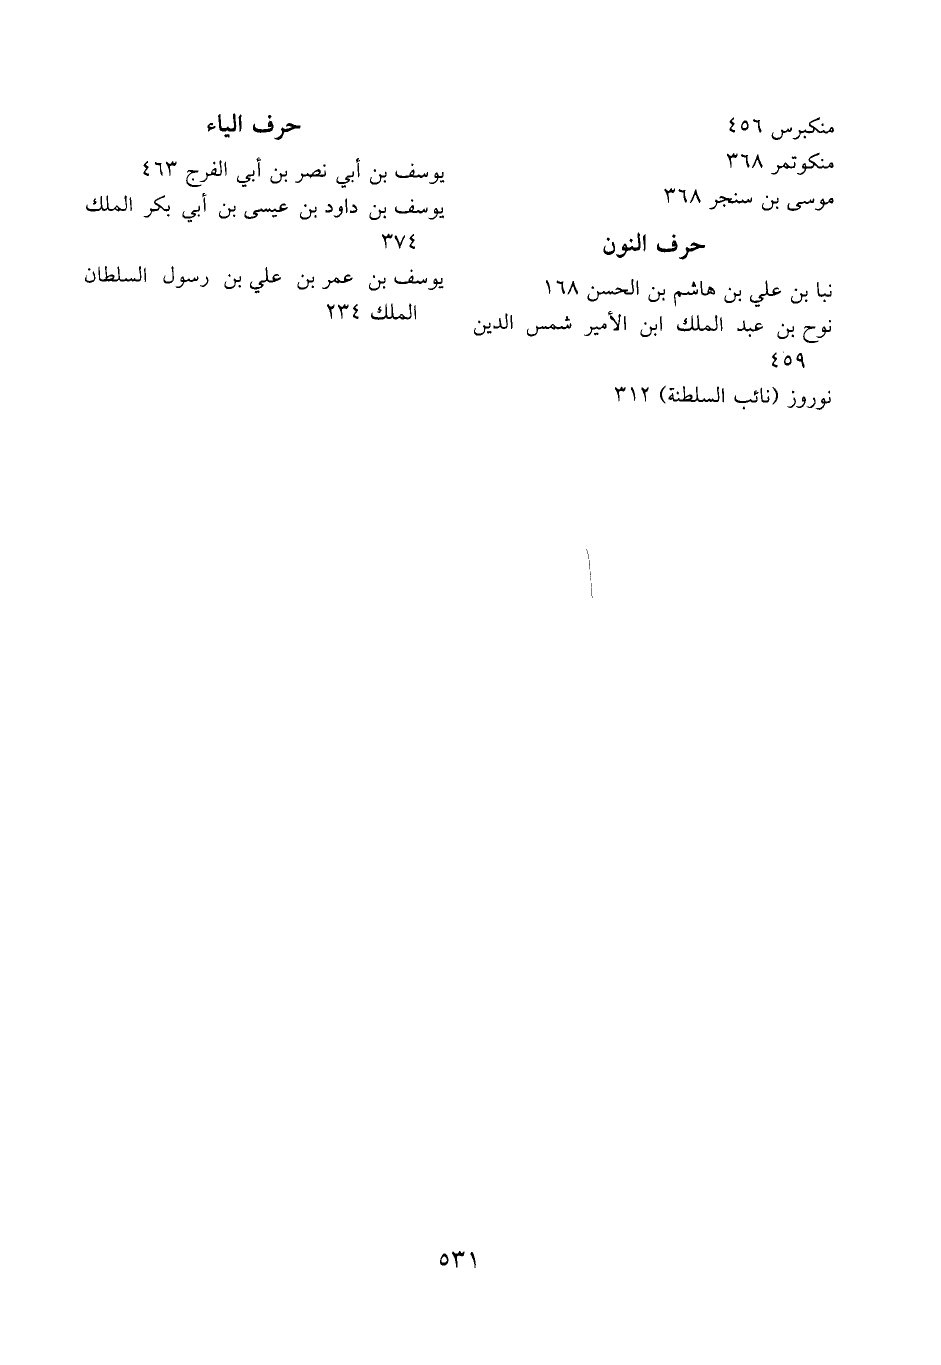 منكبرس ٤٥٦
منكوتمر ٣٦٨
موسى بن سنجر ٣٦٨
حرف النون
نبا بن علي بن هاشم بن الحسن ١٦٨
نوح بن عبد الملك ابن الأمير شمس الدين
٤٥٩
نوروز (نائب السلطنة) ٣١٢
حرف الياء
يوسف بن أبي نصر بن أبي الفرج ٤٦٣
يوسف بن داود بن عيسى بن أبي بكر الملك
٣٧٤
يوسف بن عمر بن علي بن رسول السلطان
الملك ٢٣٤
٥٣١